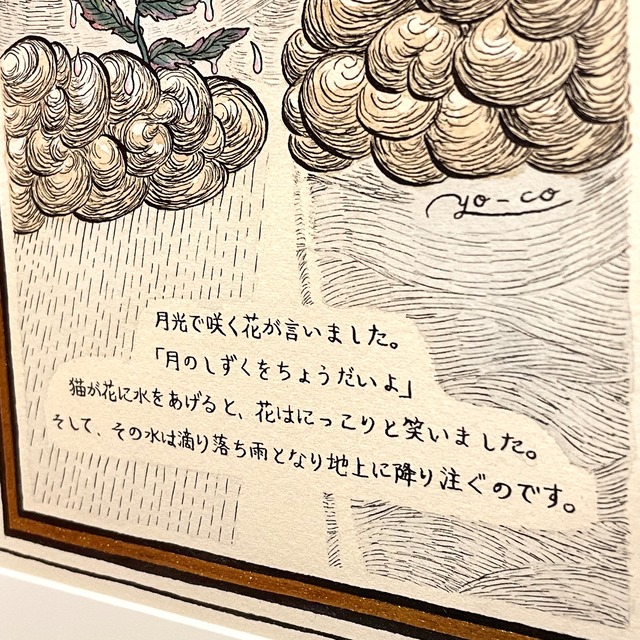 yo-co
月光で咲く花が言いました。
「月のしずくをちょうだいよ」
猫が花に水をあげると、花はにっこりと笑いました。
そして、その水は滴り落ち雨となり地上に降り注ぐのです。